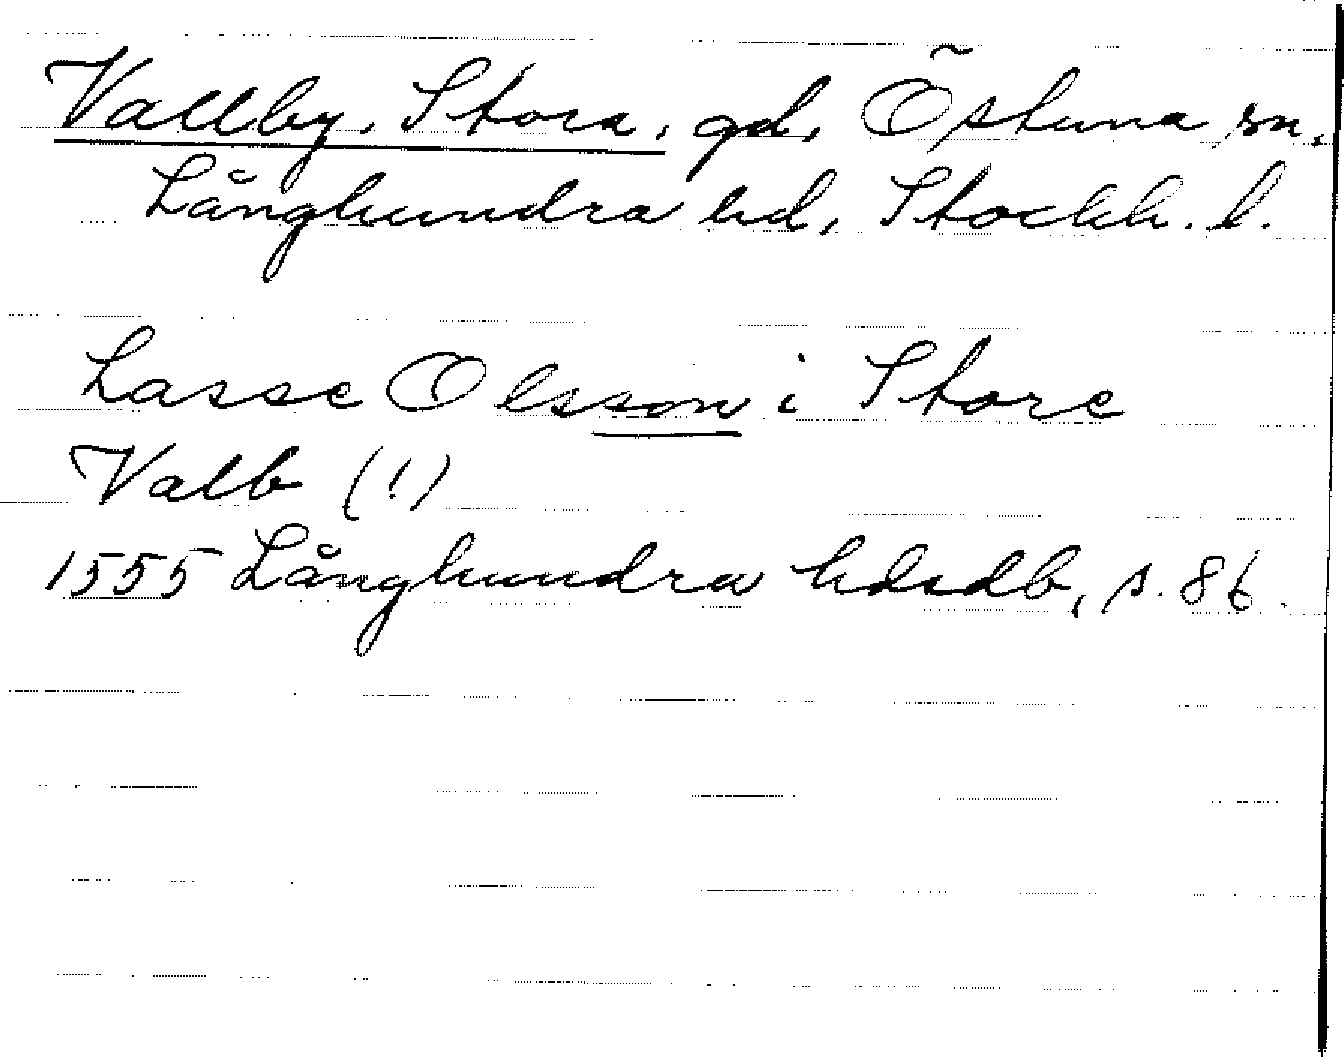 Vallby, Stora, gd, Östuna sn.
Långhundra hd, Stockh. l.
Lasse Olsson i Store
Valb (!)
1555 Långhundra hdsdb, s. 86.